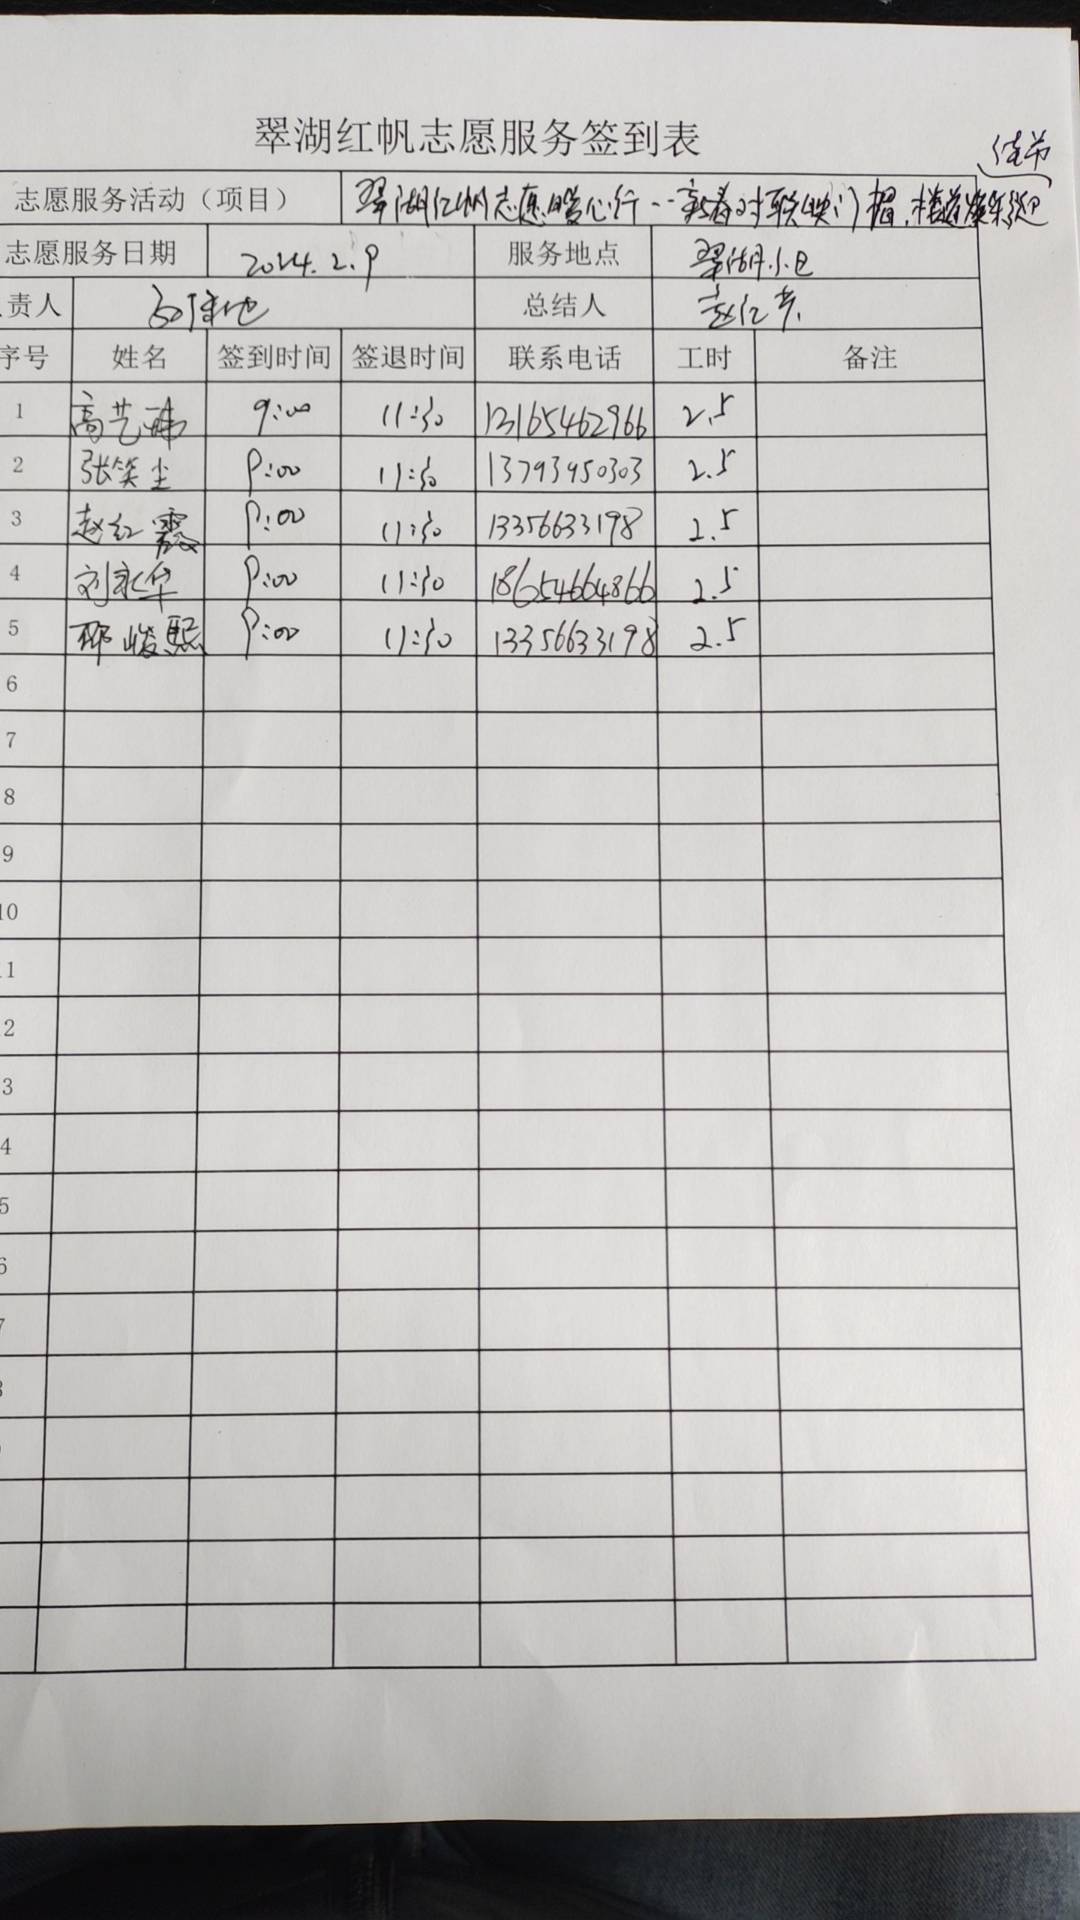 翠湖红帆志愿服务签到表
佳节
志愿服务活动（项目） 翠湖红帆志愿暖心行--新春对联映门楣,楼道
志愿服务日期 2024.2.9 服务地点 翠湖小区
责人 总结人
序号 姓名 签到时间 签退时间 联系电话 工时 备注
1 高艺玮 9:00 11:30 13165462966 2.5
2 张笑尘 9:00 11:30 13793950303 2.5
3 赵红霞 9:00 11:30 13356633198 2.5
4 刘永华 9:00 11:30 18654664866 2.5
5 邵峻熙 9:00 11:30 13356633198 2.5
6
7
8
9
10
1
2
3
4
5
6
7
8